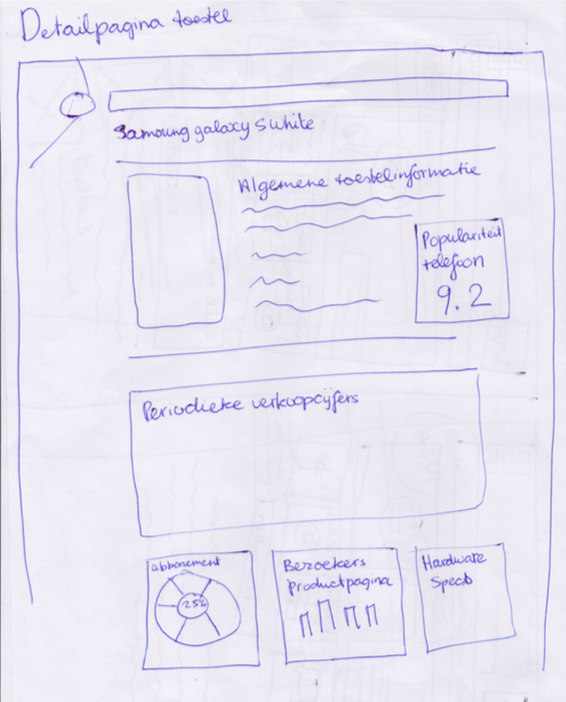 Detailpagina toestel
Samsung galaxy S white
Algemene toestelinformatie
Populariteit
telefoon
9.2
Periodieke verkoopcijfers
abbonement
25%
Bezoekers
productpagina
Hardware
Specs